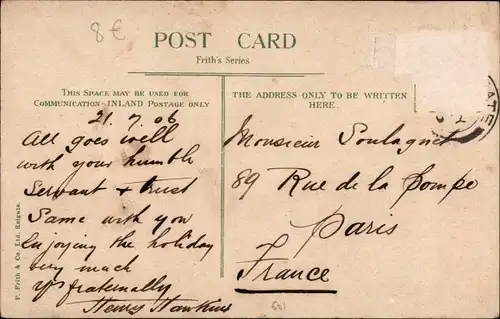 8€
POST CARD
Frith's Series
THIS SPACE MAY BE USED FOR
COMMUNICATION—INLAND POSTAGE ONLY
THE ADDRESS ONLY TO BE WRITTEN
HERE.
21.7.06
All goes well
with your humble
servant & trust
Same with you
Enjoying the holiday
very much
Yrs fraternally
Henry Hawkins
Monsieur Soulagnet
89 Rue de la Pompe
Paris
France
F. Frith & Co. Ltd. Reigate.